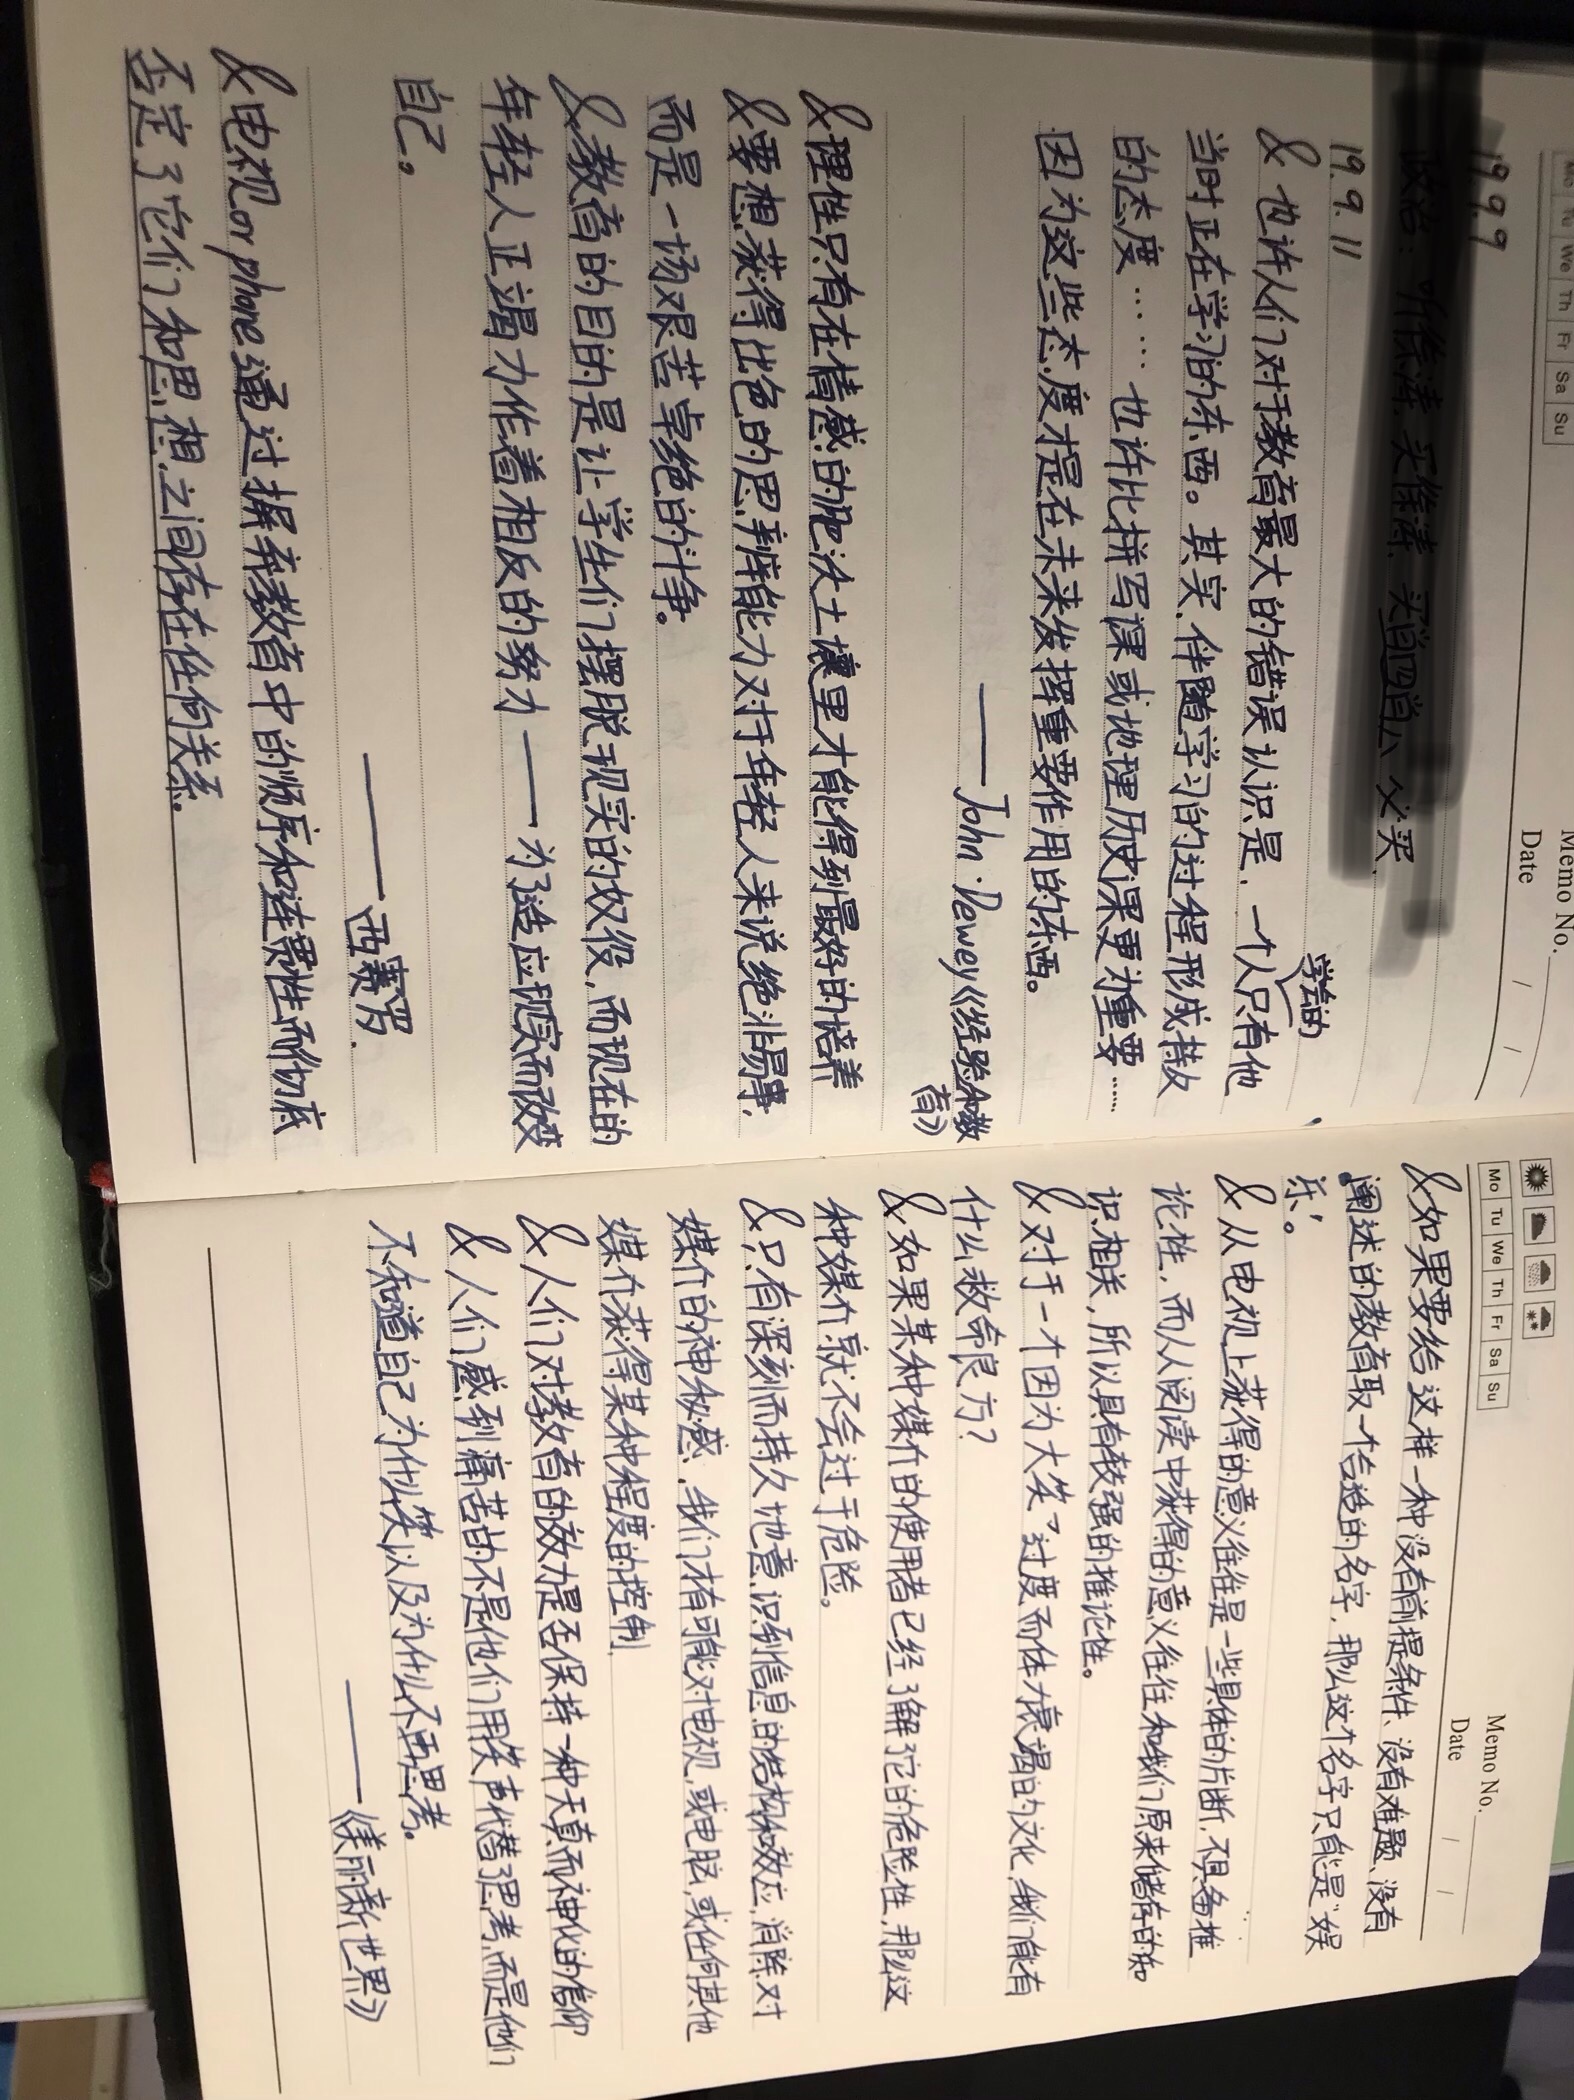 Mo Tu We Th Fr Sa Su
Memo No.
Date / /
19.9.9
19.9.11
& 也许人们对于教育最大的错误认识是,一个人只有他
学会的
当时正在学习的东西。其实,伴随学习的过程形成持久
的态度……也许比拼写课或地理历史课更为重要……
因为这些态度才是在未来发挥重要作用的东西。
——John·Dewey《经验和教
育》
&理性只有在情感的肥沃土壤里才能得到最好的培养
&要想获得出色的思辨能力对于年轻人来说绝非易事,
而是一场艰苦卓绝的斗争。
&教育的目的是让学生们摆脱现实的奴役,而现在的
年轻人正竭力作着相反的努力——为了适应现实而改变
自己。
——西赛罗.
&电视or phone通过摒弃教育中的顺序和连贯性而彻底
否定了它们和思想之间存在任何关系。
Mo Tu We Th Fr Sa Su
Memo No.
Date / /
&如果要给这样一种没有前提条件、没有难题、没有
阐述的教育取一个合适的名字,那么这个名字只能是“娱
乐”。
&从电视上获得的意义往往是一些具体的片断,不具备推
论性,而从阅读中获得的意义往往和我们原来储存的知
识相关,所以具有较强的推论性。
&对于一个因为大笑了过度而体力衰竭的文化,我们能有
什么救命良方?
&如果某种媒介的使用者已经了解它的危险性,那么这
种媒介就不会过于危险。
&只有深刻而持久地意识到信息的结构和效应,消除对
媒介的神秘感,我们才有可能对电视,或电脑,或任何其他
媒介获得某种程度的控制
&人们对教育的效力是否保持一种天真而神化的信仰
&人们感到痛苦的不是他们用笑声代替了思考,而是他们
不知道自己为什么笑以及为什么不再思考。
——《美丽新世界》